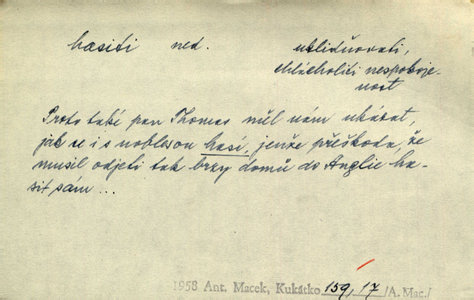 hasiti ned. uklidňovati,
chlácholiti nespokoje-
nost
Proto také pan Thomas měl nám ukázat,
jak se i s noblesou hasí, jenže přeškoda, že
musil odjeti tak brzy domů do Anglie ha-
sit sám ...
1958 Ant. Macek, Kukátko 159, 17 /A. Mac./